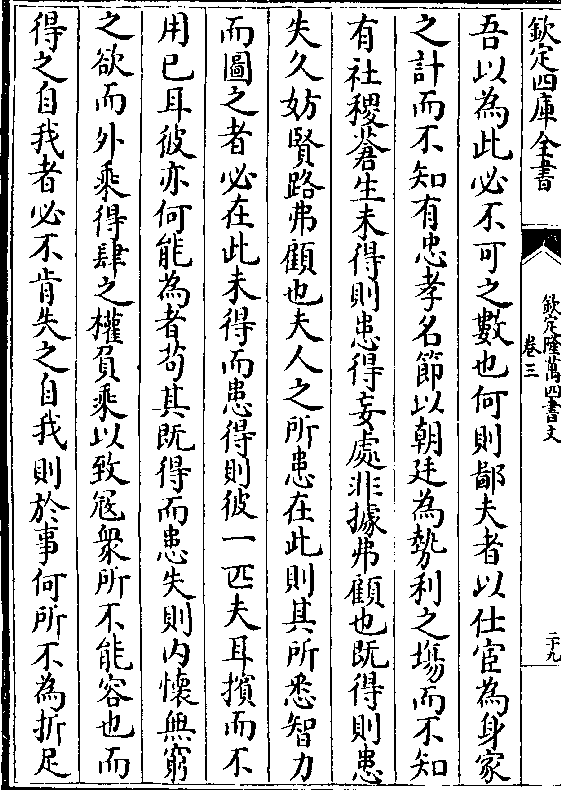 欽定四庫全書
欽定隆萬四書文
卷三
二十九
吾以為此必不可之數也何則鄙夫者以仕宦為身家
之計而不知有忠孝名節以朝廷為勢利之塲而不知
有社稷蒼生未得則患得妄處非據弗顧也既得則患
失久妨賢路弗顧也夫人之所患在此則其所悉智力
而圖之者必在此未得而患得則彼一匹夫耳擯而不
用已耳彼亦何能為者茍其既得而患失則内懷無窮
之欲而外乘得肆之權負乘以致寇衆所不能容也而
得之自我者必不肯失之自我則於事何所不為折足